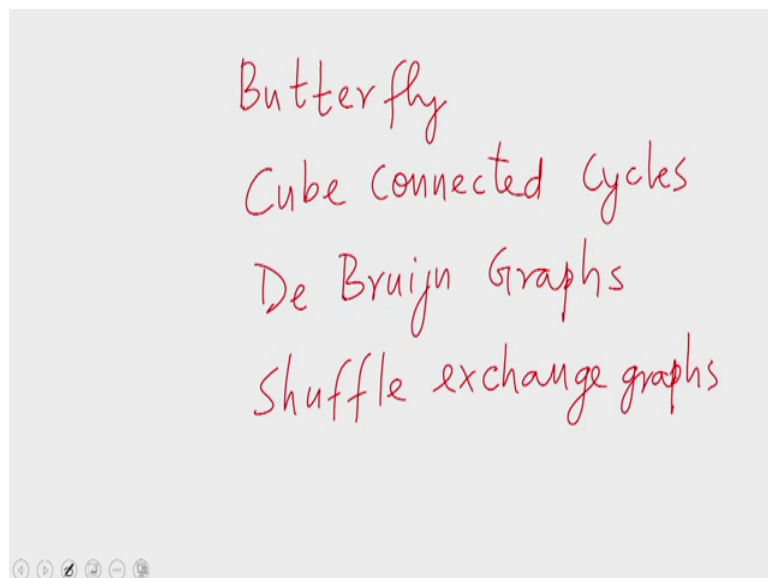 Butterfly
Cube Connected Cycles
De Bruijn Graphs
Shuffle exchange graphs